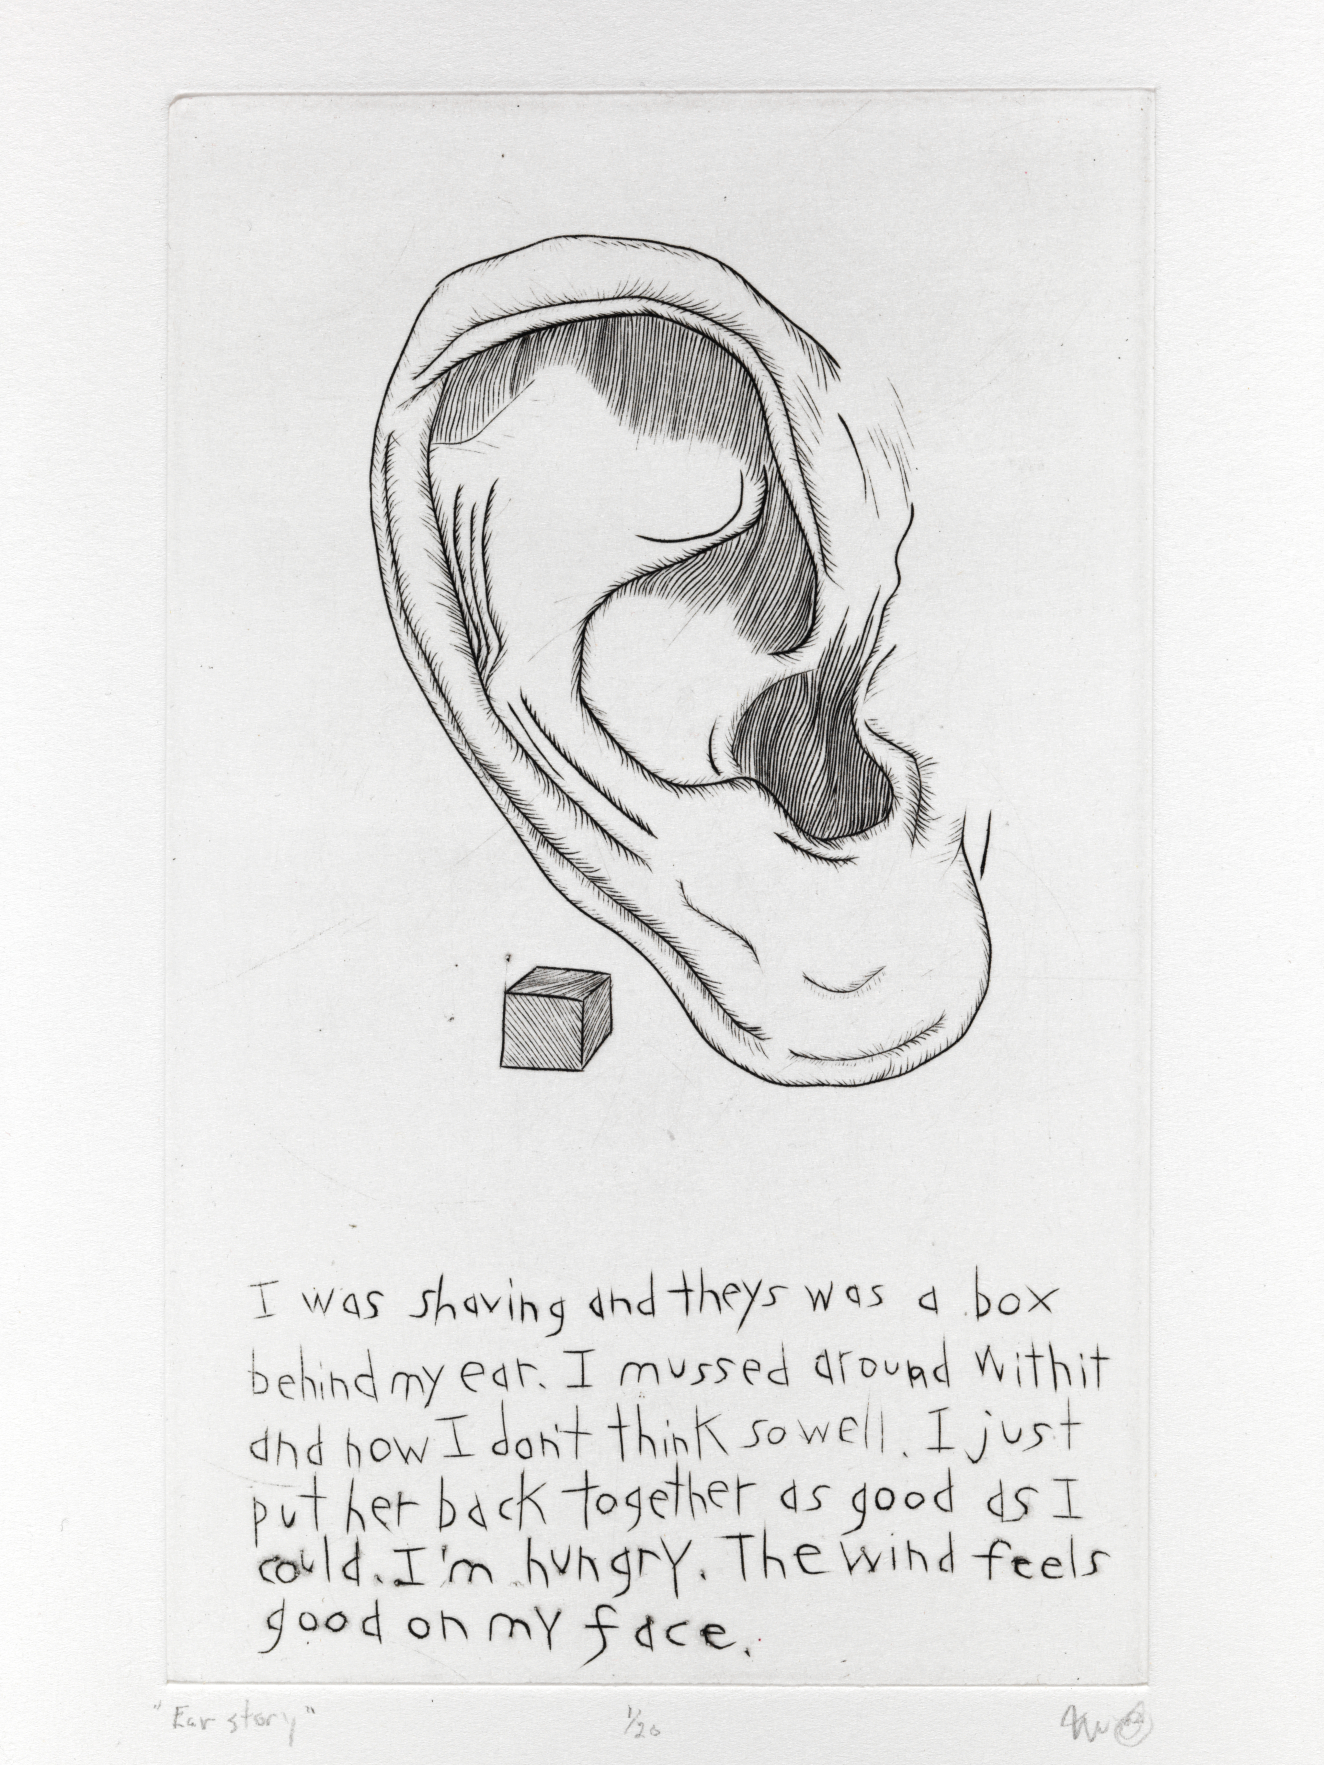 I was shaving and theys was a box
behind my ear. I mussed around withit
and now I don't think so well. I just
put her back together as good as I
could. I'm hungry. The wind feels
good on my face.
"Ear story" 1/20